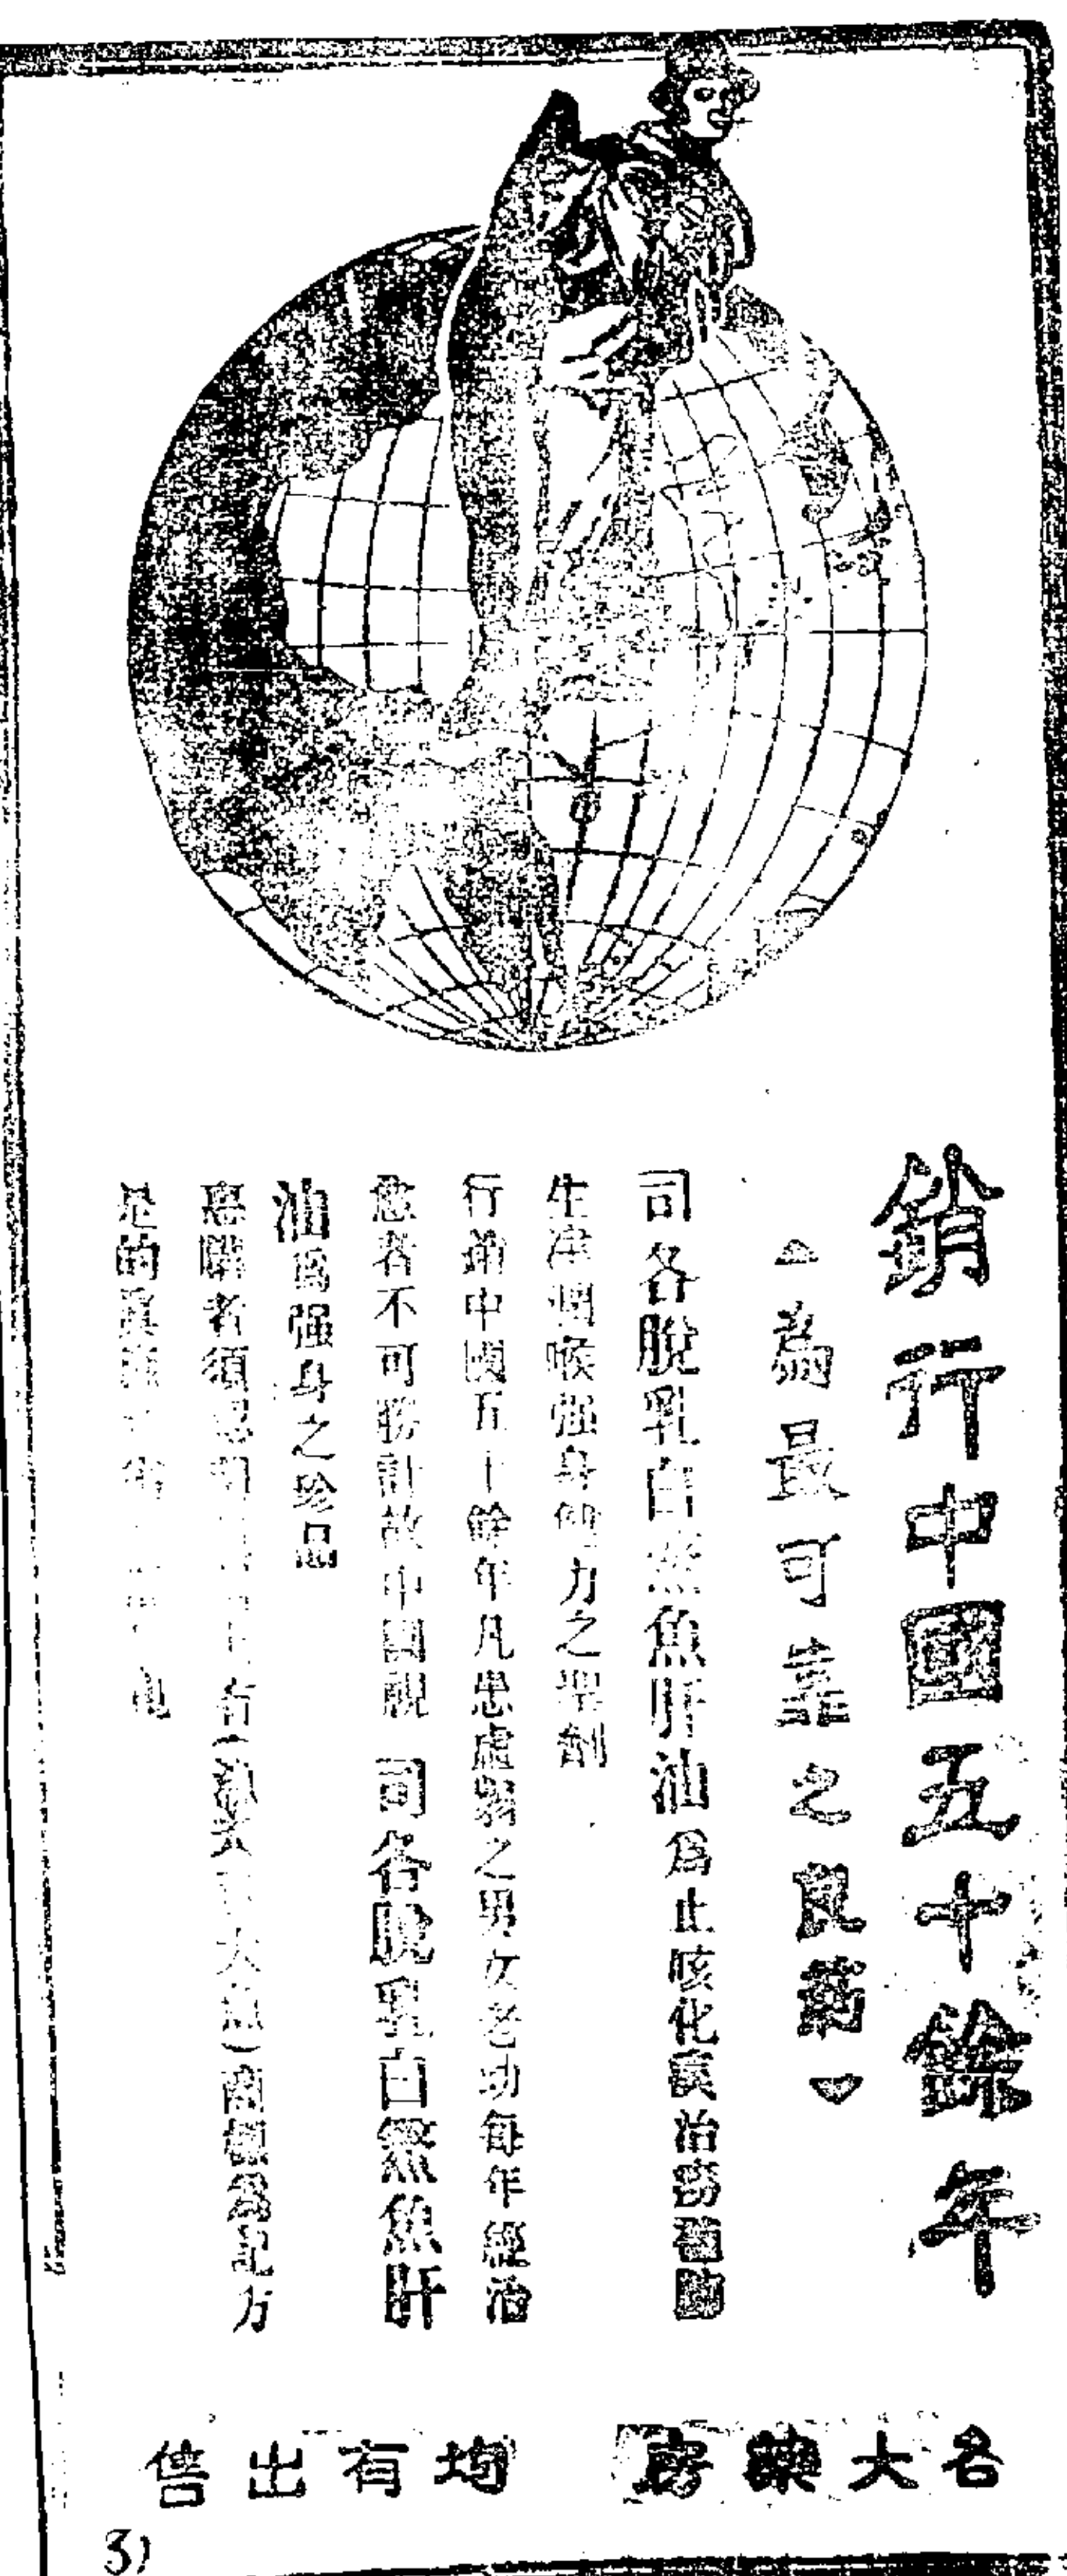 銷行中國五十餘年
為最可靠之良藥
司各脫乳白鰵魚肝油為止咳化痰治癆補肺
生津潤喉强身健力之聖劑
行銷中國五十餘年凡患虛弱之男女老幼每年經治
愈者不可勝計故中國視 司各脫乳白鰵魚肝
油為强身之珍品
惠購者須認明 上有(漁夫 大魚)商標為記方
是的真
各大藥房 均有出售
3)